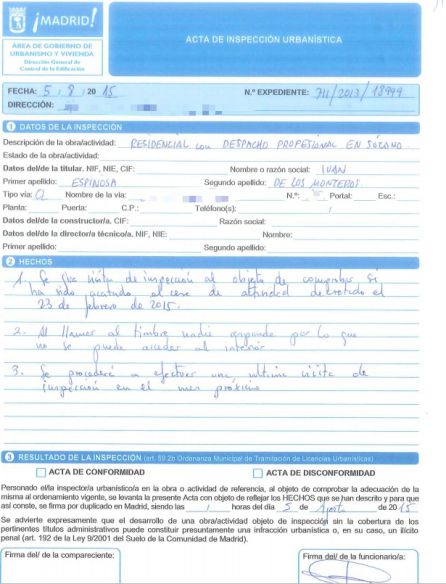 ¡MADRID!
ÁREA DE GOBIERNO DE
URBANISMO Y VIVIENDA
Dirección General de
Control de la Edificación
ACTA DE INSPECCIÓN URBANÍSTICA
FECHA: 5 / 8 / 2015 N.º EXPEDIENTE: 711/2013/18999
DIRECCIÓN:
1 DATOS DE LA INSPECCIÓN
Descripción de la obra/actividad: RESIDENCIAL con DESPACHO PROFESIONAL EN SÓTANO.
Estado de la obra/actividad:
Datos del/de la titular. NIF, NIE, CIF: Nombre o razón social: IVAN
Primer apellido: ESPINOSA Segundo apellido: DE LOS MONTEROS
Tipo vía: Nombre de la vía: N.º: Portal: Esc.:
Planta: Puerta: C.P.: Teléfono(s): /
Datos del/de la constructor/a. CIF: Razón social:
Datos del/de la director/a técnico/a. NIF, NIE: Nombre:
Primer apellido: Segundo apellido:
2 HECHOS
1. Se gira visita de inspección al objeto de comprobar si
ha sido acatado el cese de actividad decretado el
23 de febrero de 2015.
2. Al llamar al timbre nadie responde por lo que
no se puede acceder al interior
3. Se procederá a efectuar una última visita de
inspección en el mes próximo
3 RESULTADO DE LA INSPECCIÓN (art. 59.2b Ordenanza Municipal de Tramitación de Licencias Urbanísticas)
ACTA DE CONFORMIDAD ACTA DE DISCONFORMIDAD
Personado el/la inspector/a urbanístico/a en la obra o actividad de referencia, al objeto de comprobar la adecuación de la
misma al ordenamiento vigente, se levanta la presente Acta con objeto de reflejar los HECHOS que se han descrito y para que
así conste, se firma por duplicado en Madrid, siendo las / horas del día 5 de Agosto de 2015
Se advierte expresamente que el desarrollo de una obra/actividad objeto de inspección sin la cobertura de los
pertinentes títulos administrativos puede constituir presuntamente una infracción urbanística o, en su caso, un ilícito
penal (art. 192 de la Ley 9/2001 del Suelo de la Comunidad de Madrid).
Firma del/ de la compareciente: Firma del/ de la funcionario/a: